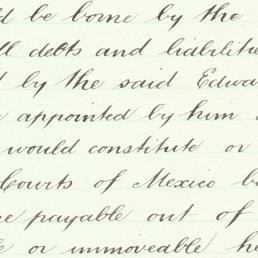 ld be borne by the
ll debts and liabilitie
d by the said Edwa
appointed by him
would constitute or
Courts of Mexico b
payable out of
or immoveable he